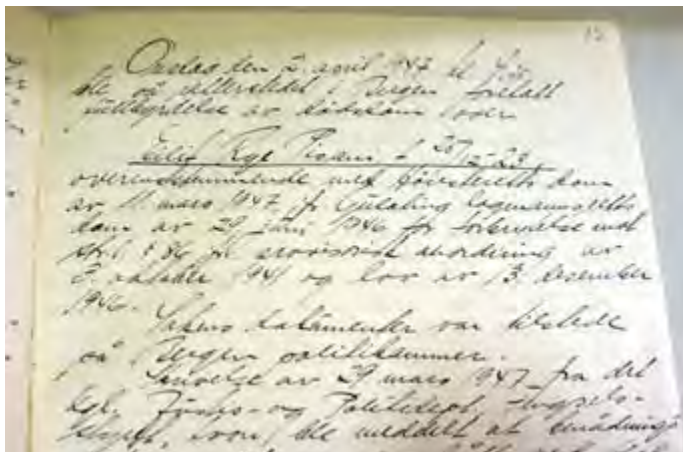 12
Onsdag den 2. april 1947 kl
ble på retterstedet i Bergen foretatt
fullbyrdelse av dødsdom over
Eilif Rye Pisani f. 25/2-23,
overensstemmende med Høiesteretts dom
av 11. mars 1947, jfr. Gulating lagmannsretts
dom av 29. juni 1946 for forbrytelse mot
strfl. § 86 jfr. provisorisk anordning av
3. oktober 1941 og lov av 13. desember
1946.
Sakens dokumenter var tilstede
på Bergen politikammer.
Skrivelse av 29 mars 1947 fra det
kgl. Justis- og Politidept,
hvori ble meddelt at benådnings